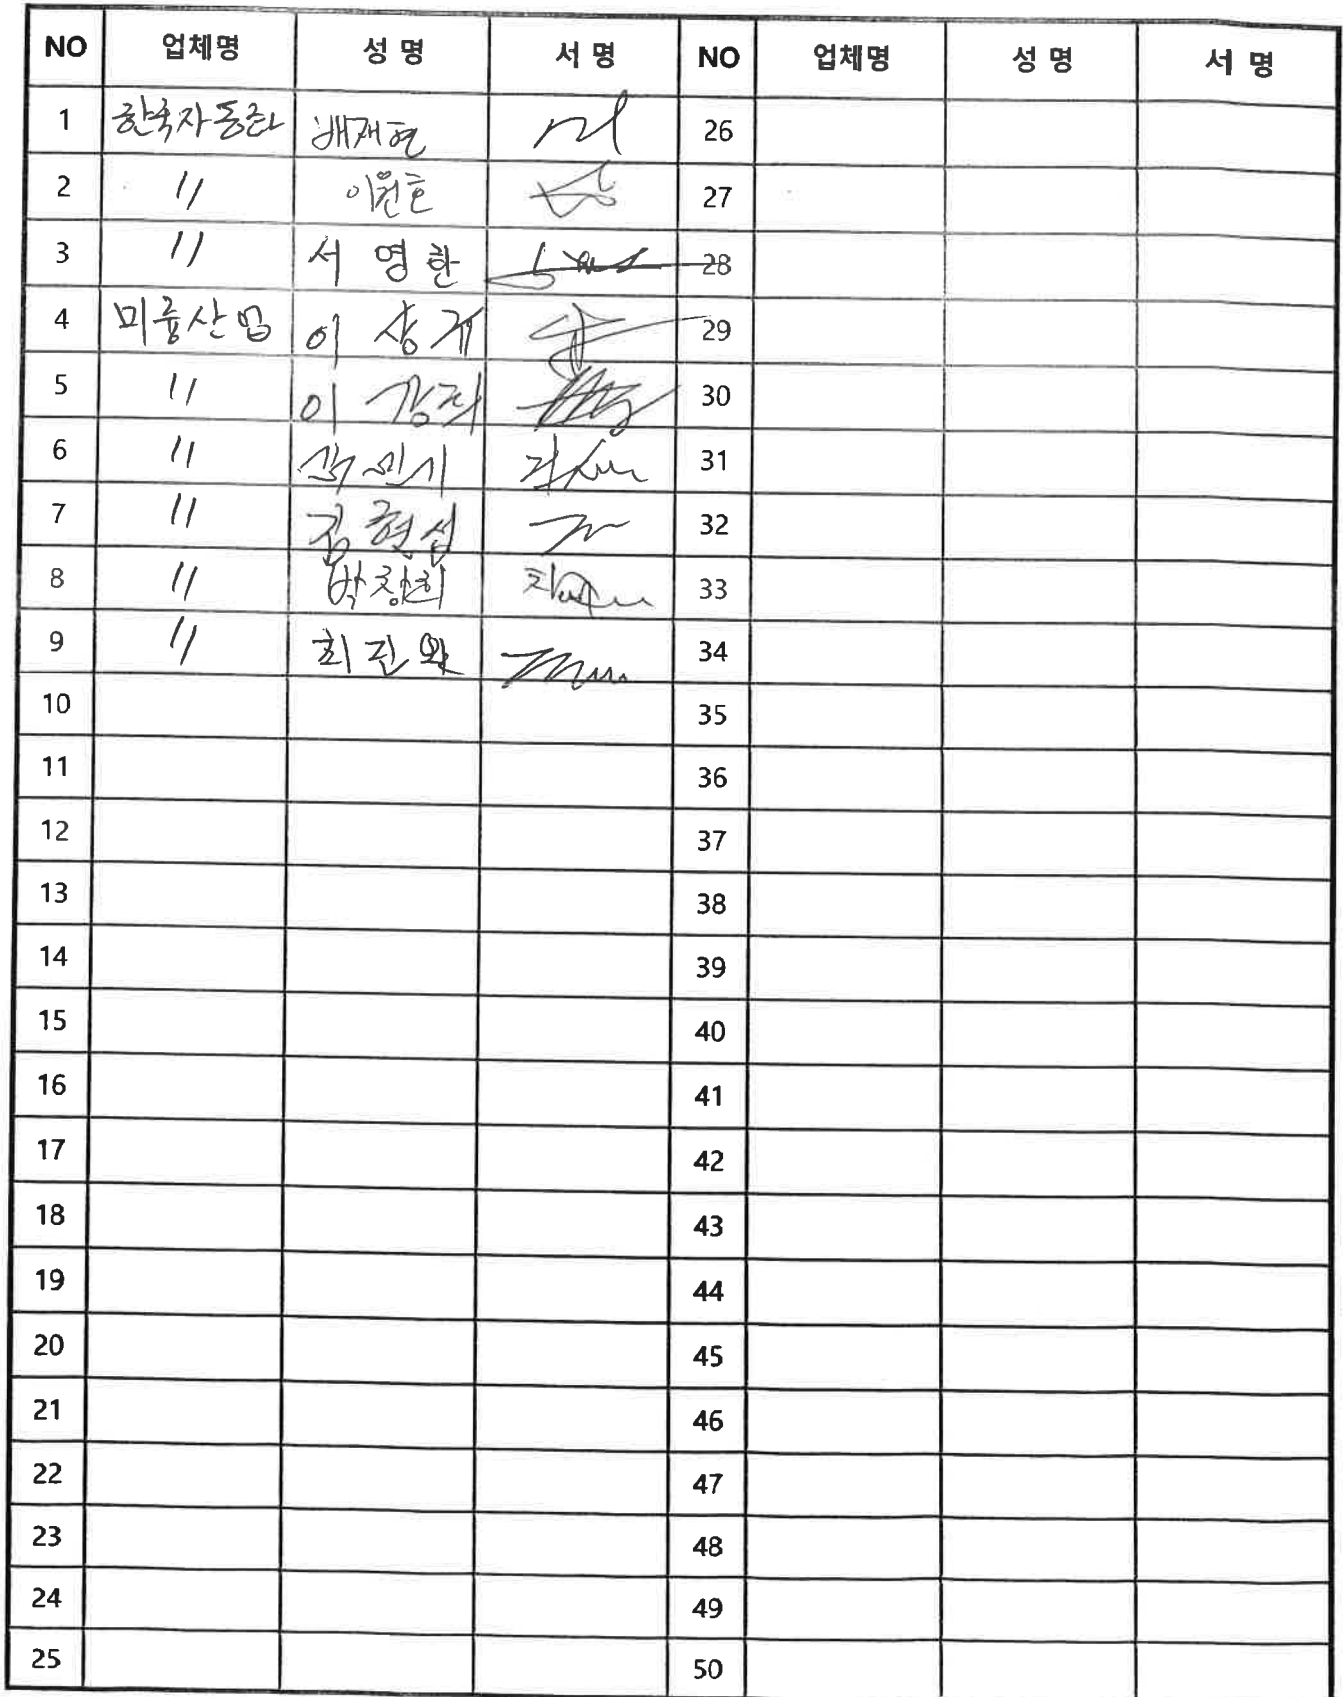 NO 업체명 성 명 서 명 NO 업체명 성 명 서 명
1 한국자동화 배재현 26
2 〃 이원호 27
3 〃 서 영 한 28
4 미륭산업 이 상 29
5 〃 이 30
6 〃 31
7 〃 김현섭 32
8 〃 박창희 33
9 〃 최진욱 34
10 35
11 36
12 37
13 38
14 39
15 40
16 41
17 42
18 43
19 44
20 45
21 46
22 47
23 48
24 49
25 50